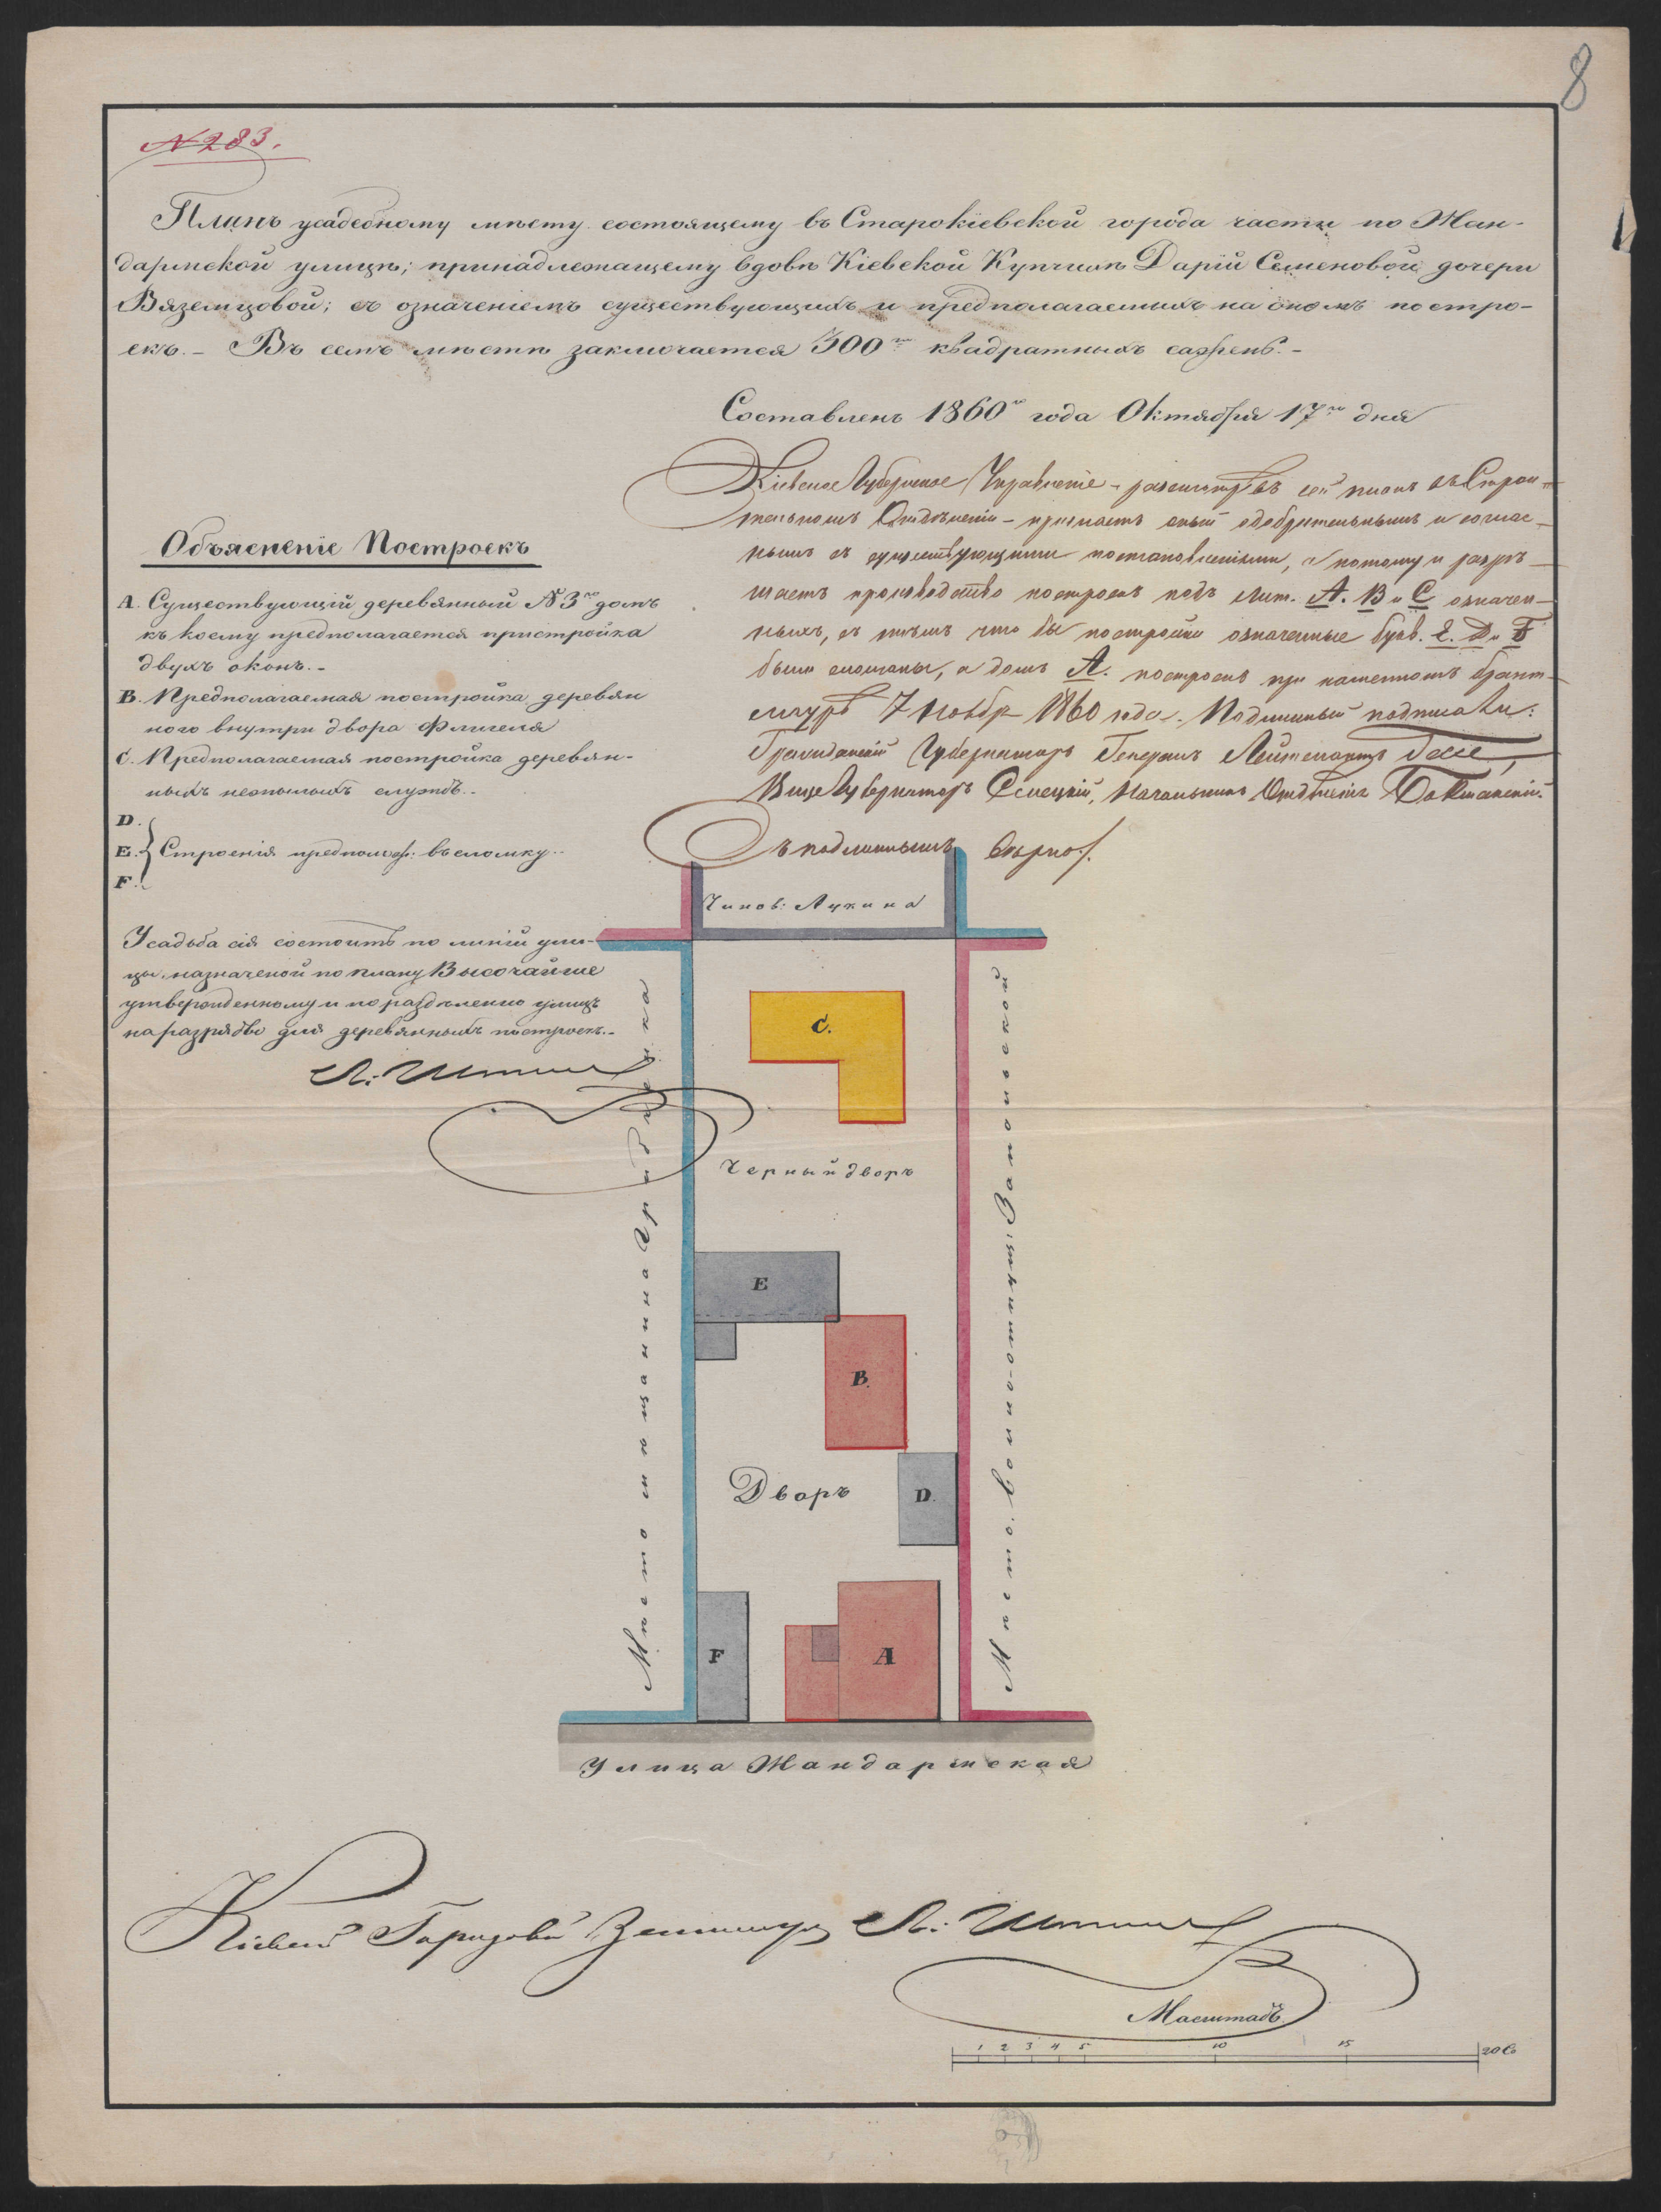 8
№ 283.
Планъ усадебному мѣсту состоящему въ Старокіевской города части по Жан-
дармской улицѣ; принадлежащему вдовѣ Кіевской Купчихѣ Дарїи Семеновой дочери
Вяземцовой; съ означеніемъ существующихъ и предполагаемыхъ на ономъ постро-
екъ. - Въ семъ мѣстѣ заключается 300 квадратныхъ сажень. -
Составленъ 1860го года Октября 17го дня
Кіевское Губернское Управленіе - разсмотрѣвъ сей планъ въ Строи-
тельномъ Отдѣленіи - признаетъ оный одобрительнымъ и соглас-
нымъ съ существующими постановленіями, а потому и разрѣ-
шаетъ производство построекъ подъ лит. A. B и C означен-
ныхъ, съ тѣмъ что бы постройки означенные букв. E. D и F
были сломаны, а домъ A. построенъ при каменномъ брант-
мауръ 7 Ноябр 1860 года. Подлинный подписали:
Гражданскій Губернаторъ Генералъ Лейтенантъ Гессе,
Вице Губернаторъ Селецкій, Начальникъ Отдѣленія
Съ подлиннымъ вѣрно:
Объясненіе Построекъ
A. Существующій деревянный № 3го домъ
къ коему предполагается пристройка
двухъ оконъ. -
B. Предполагаемая постройка деревян
ного внутри двора Флигеля
C. Предполагаемая постройка деревян-
ныхъ нежилыхъ службъ. -
D.
E. Строенія предполож: въ сломку. -
F.
Усадьба сія состоитъ по линіи ули-
цы, назначеной по плану Высочайше
утвержденному и по раздѣленію улицъ
на разряды для деревянныхъ построекъ. -
Чинов: Лукина
C.
Черный дворъ
E
B.
Дворъ
D.
F
A
Мѣсто мѣщанина
Мѣсто. вольно-отпущ: Запольской
Улица Жандармская
Кіевскій Городовой Землемѣръ
Масштабъ
1 2 3 4 5 10 15 20 С.